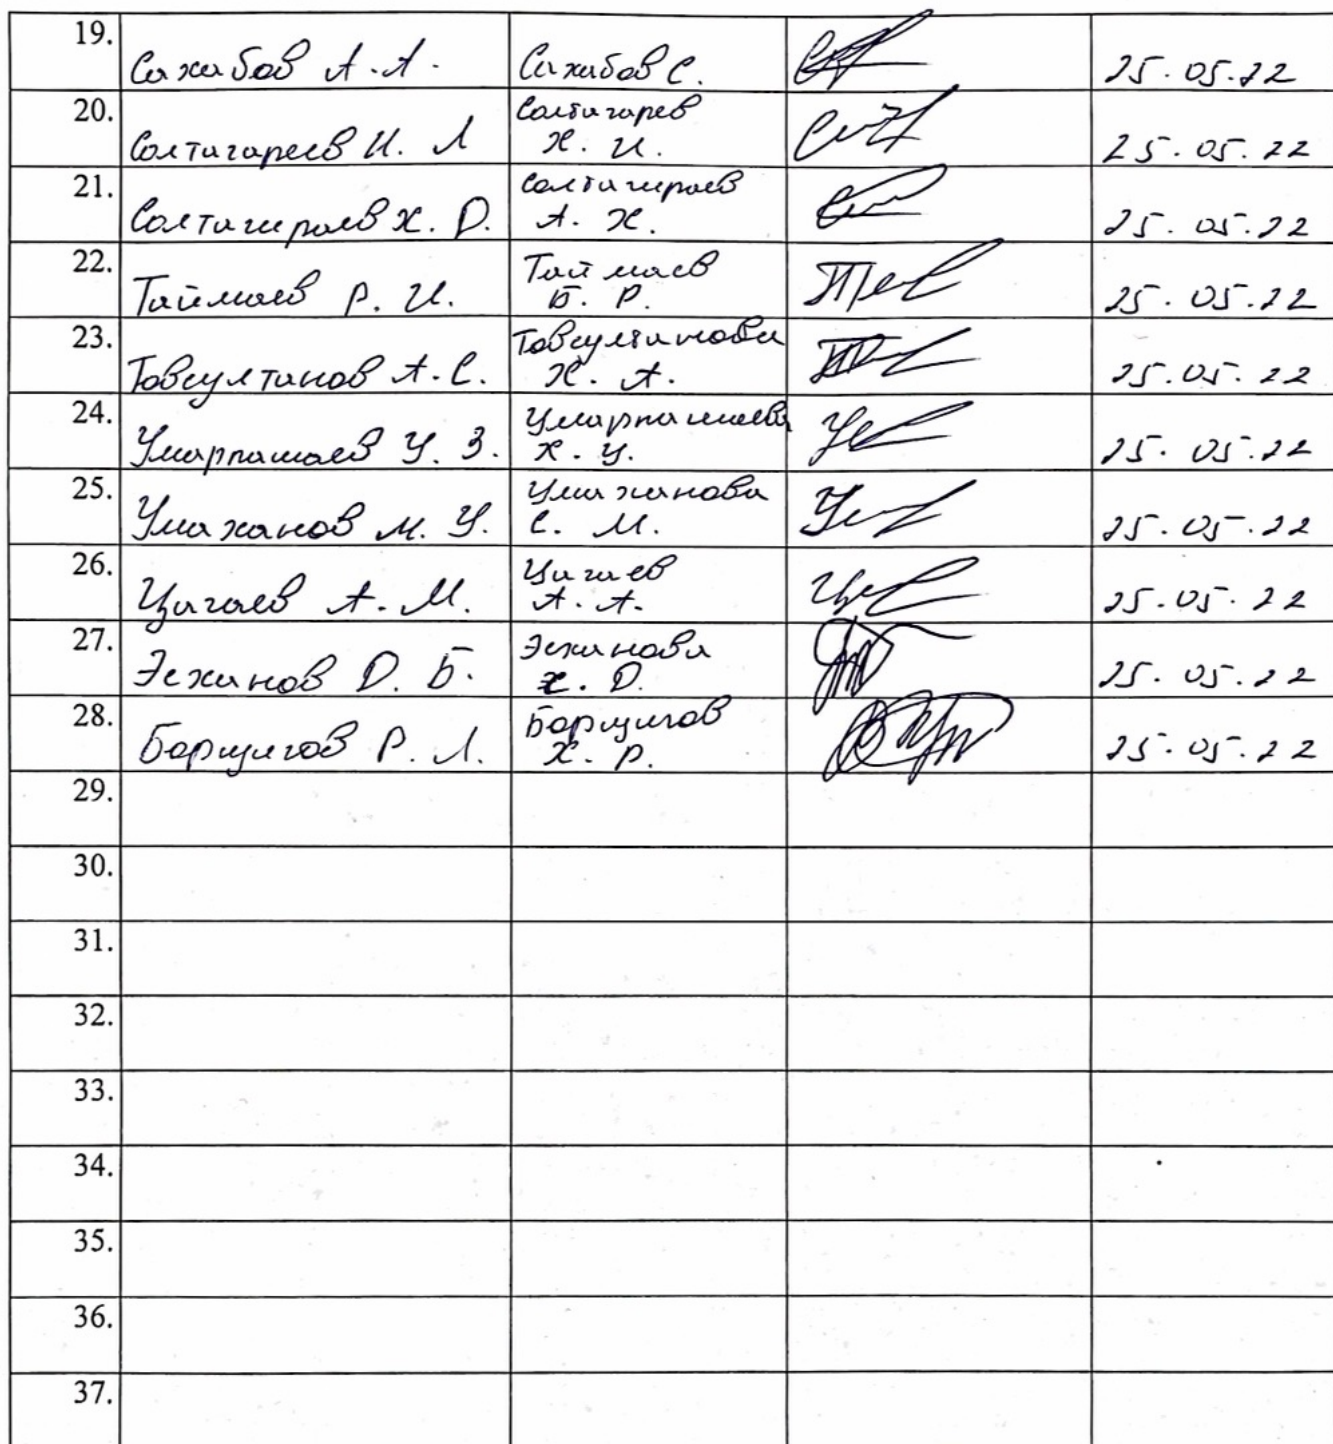 19. Сахабов А.А. Сахабов С. 25.05.22
20. Солтагареев И. Л Солтагареев Х. И. 25.05.22
21. Солтагираев Х. Д. Солтагираев А. Х. 25.05.22
22. Таймаев Р. И. Таймаев Б. Р. 25.05.22
23. Товсултанов А.С. Товсултанова Х. А. 25.05.22
24. Умарпашаев У. З. Умарпашаева Х. У. 25.05.22
25. Умаханов М. У. Умаханова С. М. 25.05.22
26. Цагаев А. М. Цагаев А. А. 25.05.22
27. Эсханов Д. Б. Эсханова Х. Д. 25.05.22
28. Борщигов Р. Л. Борщигов Х. Р. 25.05.22
29.
30.
31.
32.
33.
34.
35.
36.
37.